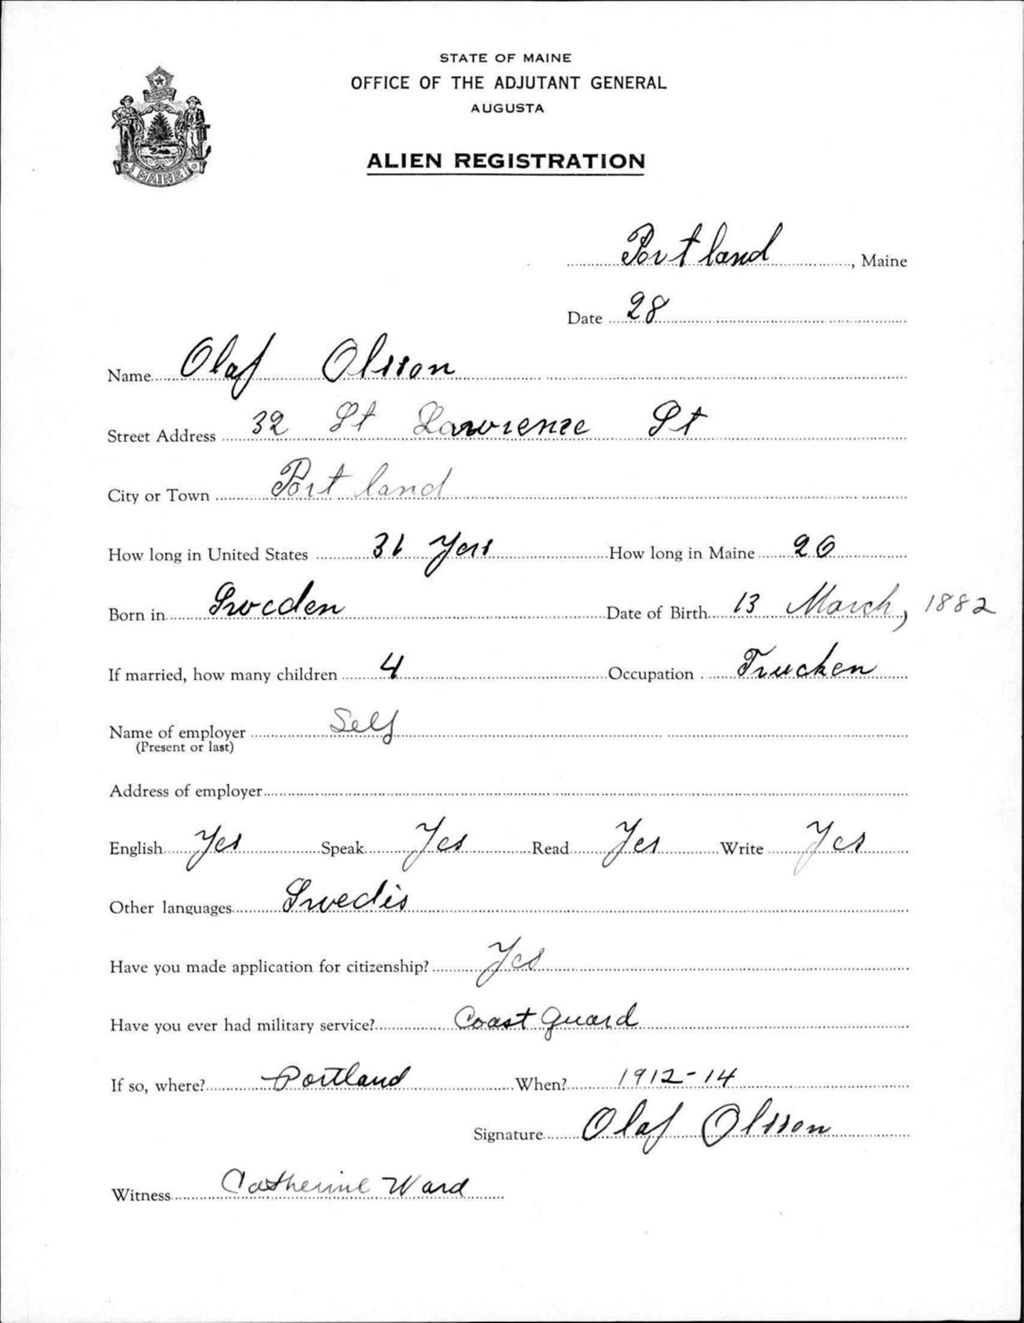 STATE OF MAINE
OFFICE OF THE ADJUTANT GENERAL
AUGUSTA
ALIEN REGISTRATION
MAINE
Portland, Maine
Date 28
Name Olaf Olsson
Street Address 32 St Lawrence St
City or Town Portland
How long in United States 31 Yers How long in Maine 26
Born in Sweden Date of Birth 13 March, 1882
If married, how many children 4 Occupation Trucken
Name of employer Self
(Present or last)
Address of employer
English Yes Speak Yes Read Yes Write Yes
Other languages Swedis
Have you made application for citizenship? Yes
Have you ever had military service? Coast Guard
If so, where? Portland When? 1912-14
Signature Olaf Olsson
Witness Catherine Ward